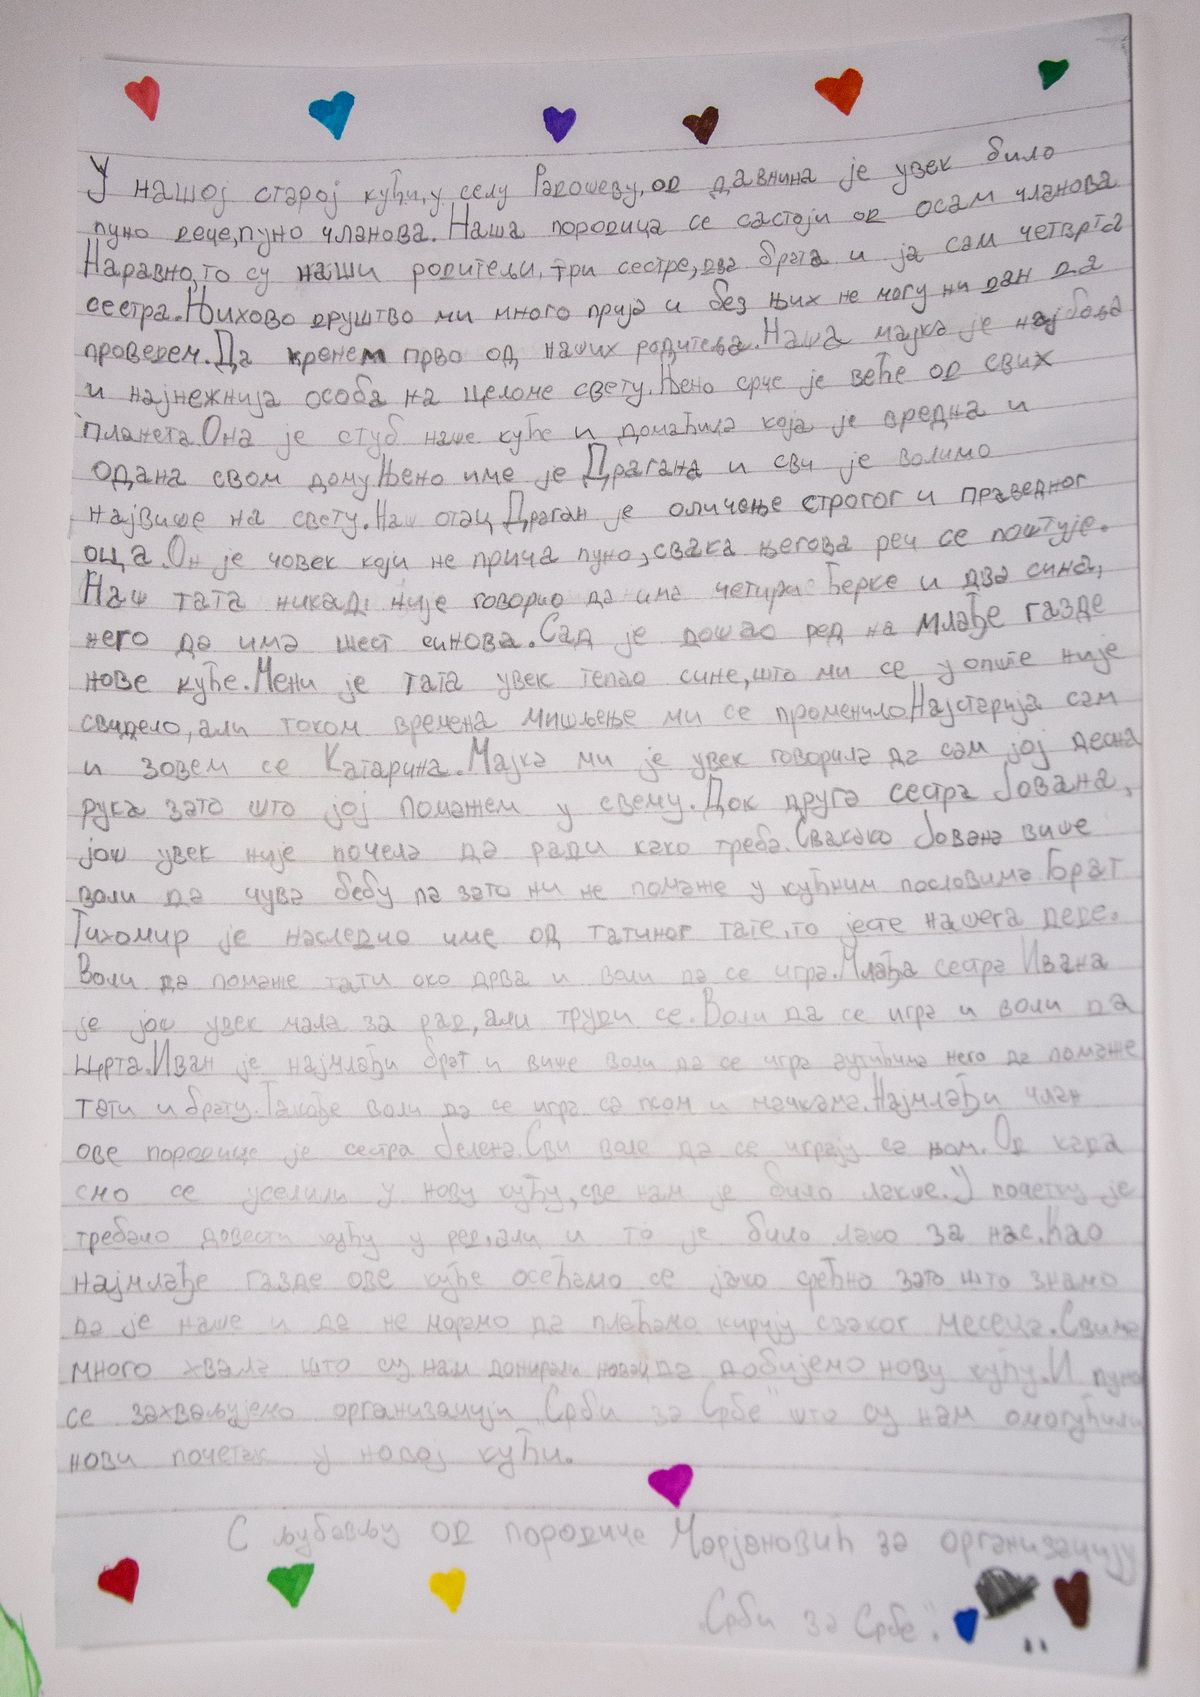 У нашој старој кући, у селу Радошеву, од давнина је увек било
пуно деце, пуно чланова. Наша породица се састоји од осам чланова
Наравно, то су наши родитељи, три сестре, два брата и ја сам четврта
сестра. Њихово друштво ми много прија и без њих не могу ни дан да
проведем. Да кренем прво од наших родитеља. Наша мајка је најбоља
и најнежнија особа на целоме свету. Њено срце је веће од свих
планета. Она је стуб наше куће и домаћица која је вредна и
одана свом дому. Њено име је Драгана и сви је волимо
највише на свету. Наш отац Драган је оличење строгог и праведног
оца. Он је човек који не прича пуно, свака његова реч се поштује.
Наш тата никад није говорио да има четири ћерке и два сина,
него да има шест синова. Сад је дошао ред на млађе газде
нове куће. Мени је тата увек тепао сине, што ми се уопште није
свидело, али током времена мишљење ми се променило. Најстарија сам
и зовем се Катарина. Мајка ми је увек говорила да сам јој десна
рука зато што јој помажем у свему. Док друга сестра Јована,
још увек није почела да ради како треба. Свакако Јована више
воли да чува бебу па зато ни не помаже у кућним пословима. Брат
Тихомир је наследио име од татиног тате, то јесте нашега деде.
Воли да помаже тати око дрва и воли да се игра. Млађа сестра Ивана
је још увек мала за рад, али труди се. Воли да се игра и воли да
црта. Иван је најмлађи брат и више воли да се игра аутићима него да помаже
тати и брату. Такође воли да се игра са псом и мачкама. Најмлађи члан
ове породице је сестра Јелена. Сви воле да се играју са њом. Од када
смо се уселили у нову кућу, све нам је било лакше. У почетку је
требало довести кућу у ред, али и то је било лако за нас. Као
најмлађе газде ове куће осећамо се јако срећно зато што знамо
да је наше и да не морамо да плаћамо кирију сваког месеца. Свима
много хвала што су нам донирали новац да добијемо нову кућу. И пуно
се захваљујемо организацији „Срби за Србе" што су нам омогућили
нови почетак у новој кући.
С љубављу од породице Марјановић за организацију
„Срби за Србе".